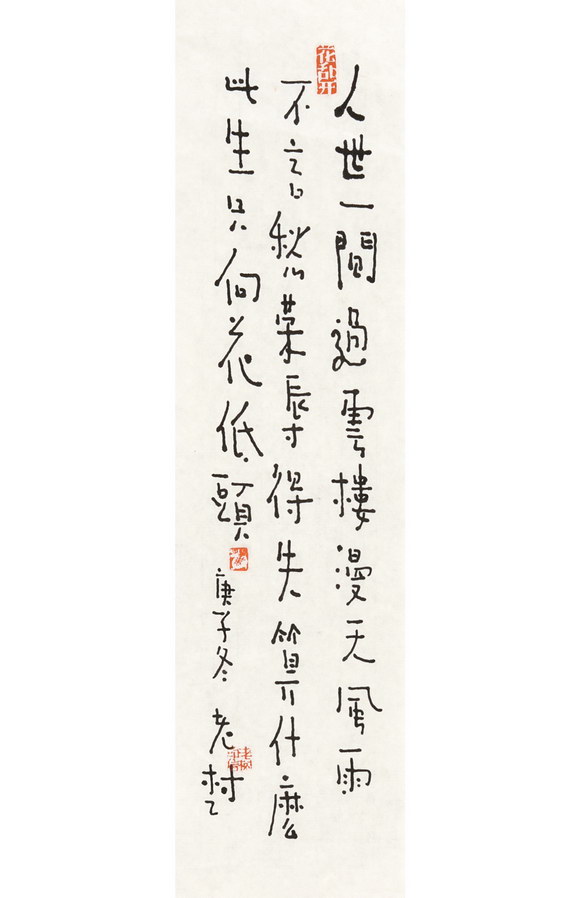 花乱开
人世一間過雲樓漫天風雨
不言愁榮辱得失算什麼
此生只向花低頭
庚子冬 老村